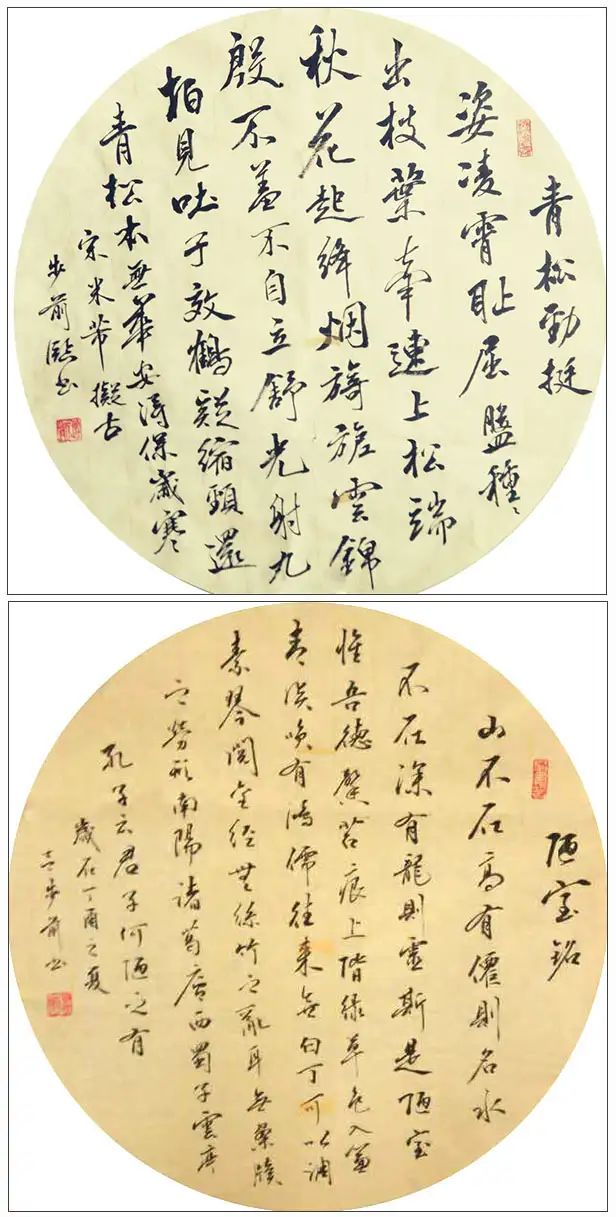 青松勁挺
姿凌霄耻屈盤種〻
出枝葉牽連上松端
秋花起絳烟旖旎雲錦
殷不羞不自立舒光射丸
柏見吐子效鶴疑縮頸還
青松本無華安得保歲寒
宋米芾擬古
步前書
陋室銘
山不在高有僊則名水
不在深有龍則靈斯是陋室
惟吾德馨苔痕上階綠草色入簾
青談笑有鴻儒往來無白丁可以調
素琴閱金經無絲竹之亂耳無案牘
之勞形南陽諸葛廬西蜀子雲亭
孔子云君子何陋之有
歲在丁酉之夏
步前書